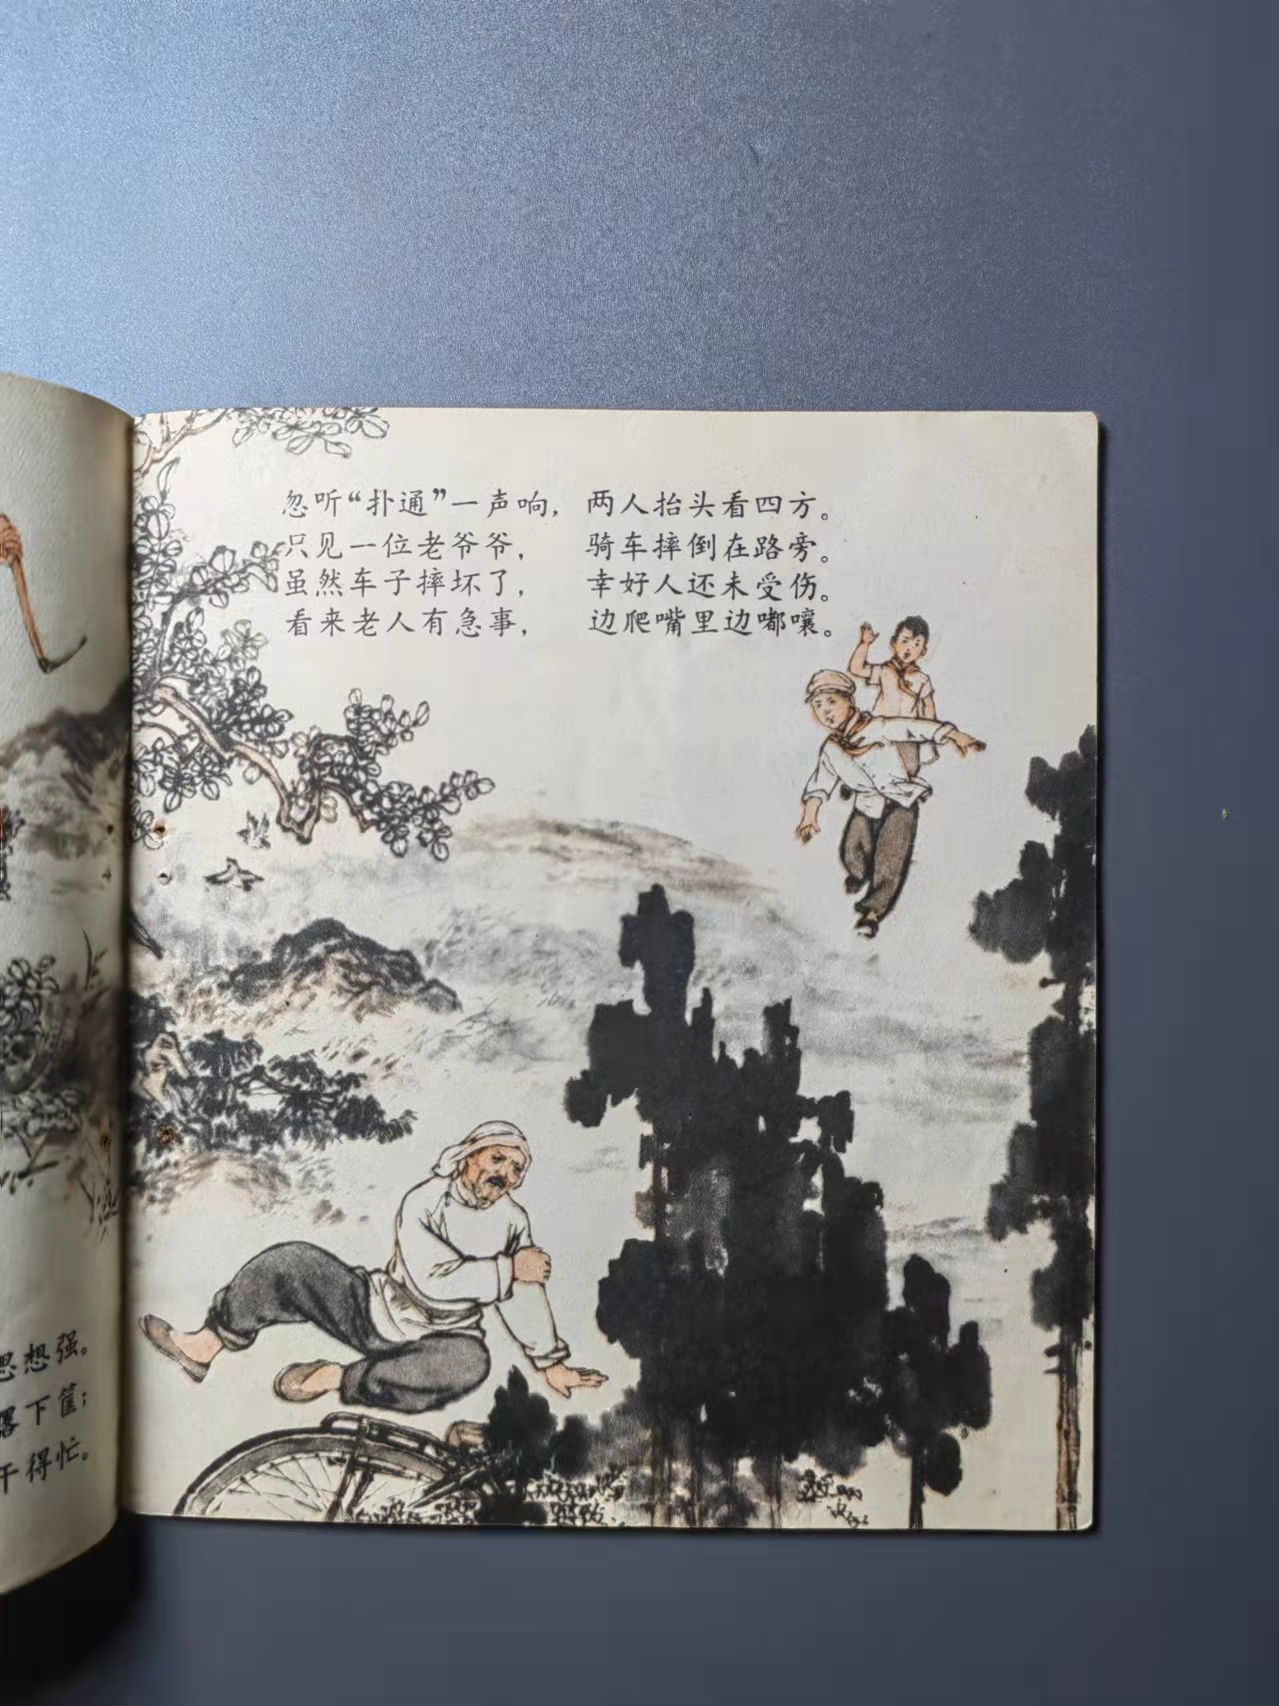 忽听“扑通”一声响，两人抬头看四方。
只见一位老爷爷，骑车摔倒在路旁。
虽然车子摔坏了，幸好人还未受伤。
看来老人有急事，边爬嘴里边嘟嚷。
思想强。
下筐；
干得忙。